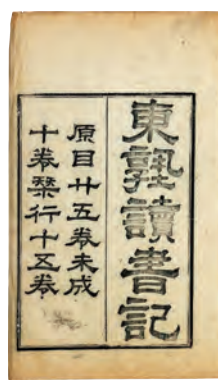 東塾讀書記
原目廿五卷未成
十卷槧行十五卷